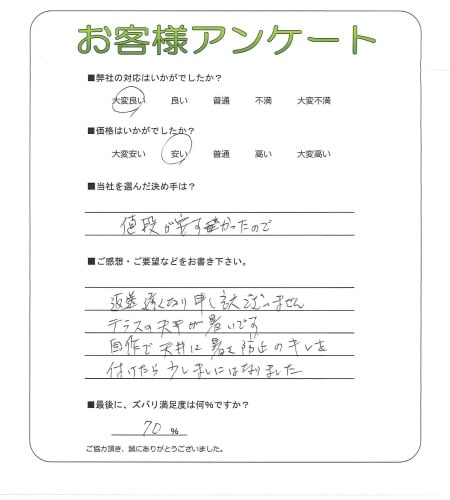 お客様アンケート
■弊社の対応はいかがでしたか？
大変良い 良い 普通 不満 大変不満
■価格はいかがでしたか？
大変安い 安い 普通 高い 大変高い
■当社を選んだ決め手は？
値段が安すかったので
■ご感想・ご要望などをお書き下さい。
返送遅くなり申し訳ございません
テラスの天井が暑いです
自作で天井に暑さ防止のキレを
付けたら少しましにはなりました
■最後に、ズバリ満足度は何%ですか？
70 %
ご協力頂き、誠にありがとうございました。